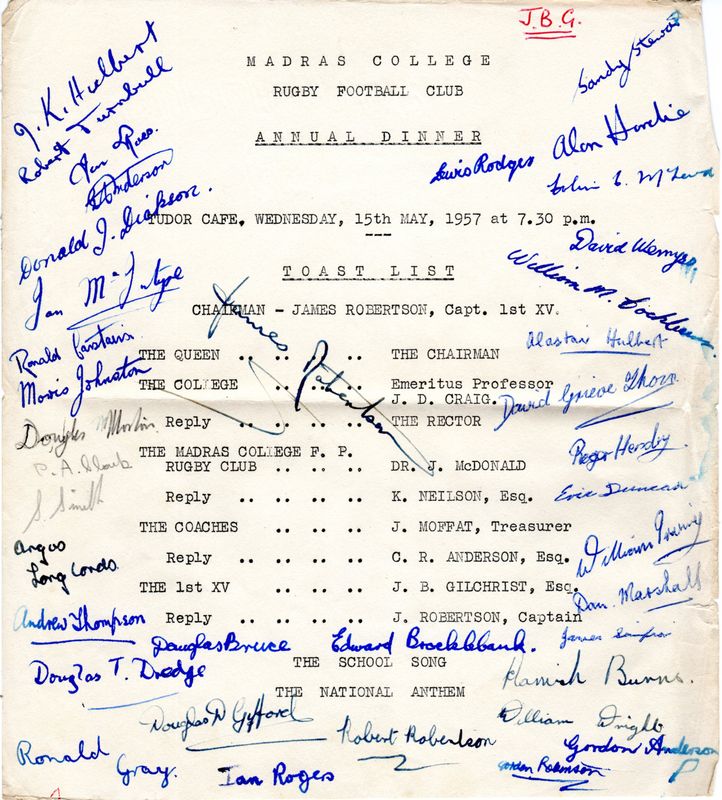 J.B.G.
MADRAS COLLEGE
RUGBY FOOTBALL CLUB
ANNUAL DINNER
TUDOR CAFE, WEDNESDAY, 15th MAY, 1957 at 7.30 p.m.
---
TOAST LIST
CHAIRMAN - JAMES ROBERTSON, Capt. 1st XV.
THE QUEEN .. .. .. THE CHAIRMAN
THE COLLEGE .. .. .. Emeritus Professor
J. D. CRAIG.
Reply .. .. .. THE RECTOR
THE MADRAS COLLEGE F. P.
RUGBY CLUB .. .. DR. J. McDONALD
Reply .. .. .. K. NEILSON, Esq.
THE COACHES .. .. J. MOFFAT, Treasurer
Reply .. .. .. C. R. ANDERSON, Esq.
THE 1st XV .. .. J. B. GILCHRIST, Esq.
Reply .. .. .. J. ROBERTSON, Captain
THE SCHOOL SONG
THE NATIONAL ANTHEM
J. K. Hulbert
Robert Turnbull
Ian
Anderson
Donald J. Dickson.
Ian McIntyre
Ronald
Morris Johnston
Douglas Martin
P. A.
S. Smith
Angus
Longlands
Andrew Thompson
Douglas T. Dredge
Ronald
Gray.
James Robertson
Douglas Bruce
Edward Brocklebank.
Douglas D Gifford
Robert Robertson
Ian Rogers
Sandy Stewart
Alan Hardie
Lewis Rodger
Colin C. McLeod
David Wemyss
William M. Cockburn.
Alastair Hulbert
David Grieve Thom
Roger Hendry.
Eric Duncan
William
Dan. Marshall
James Simpson
Hamish Burns.
William Wright
Gordon Anderson
Gordon Robinson